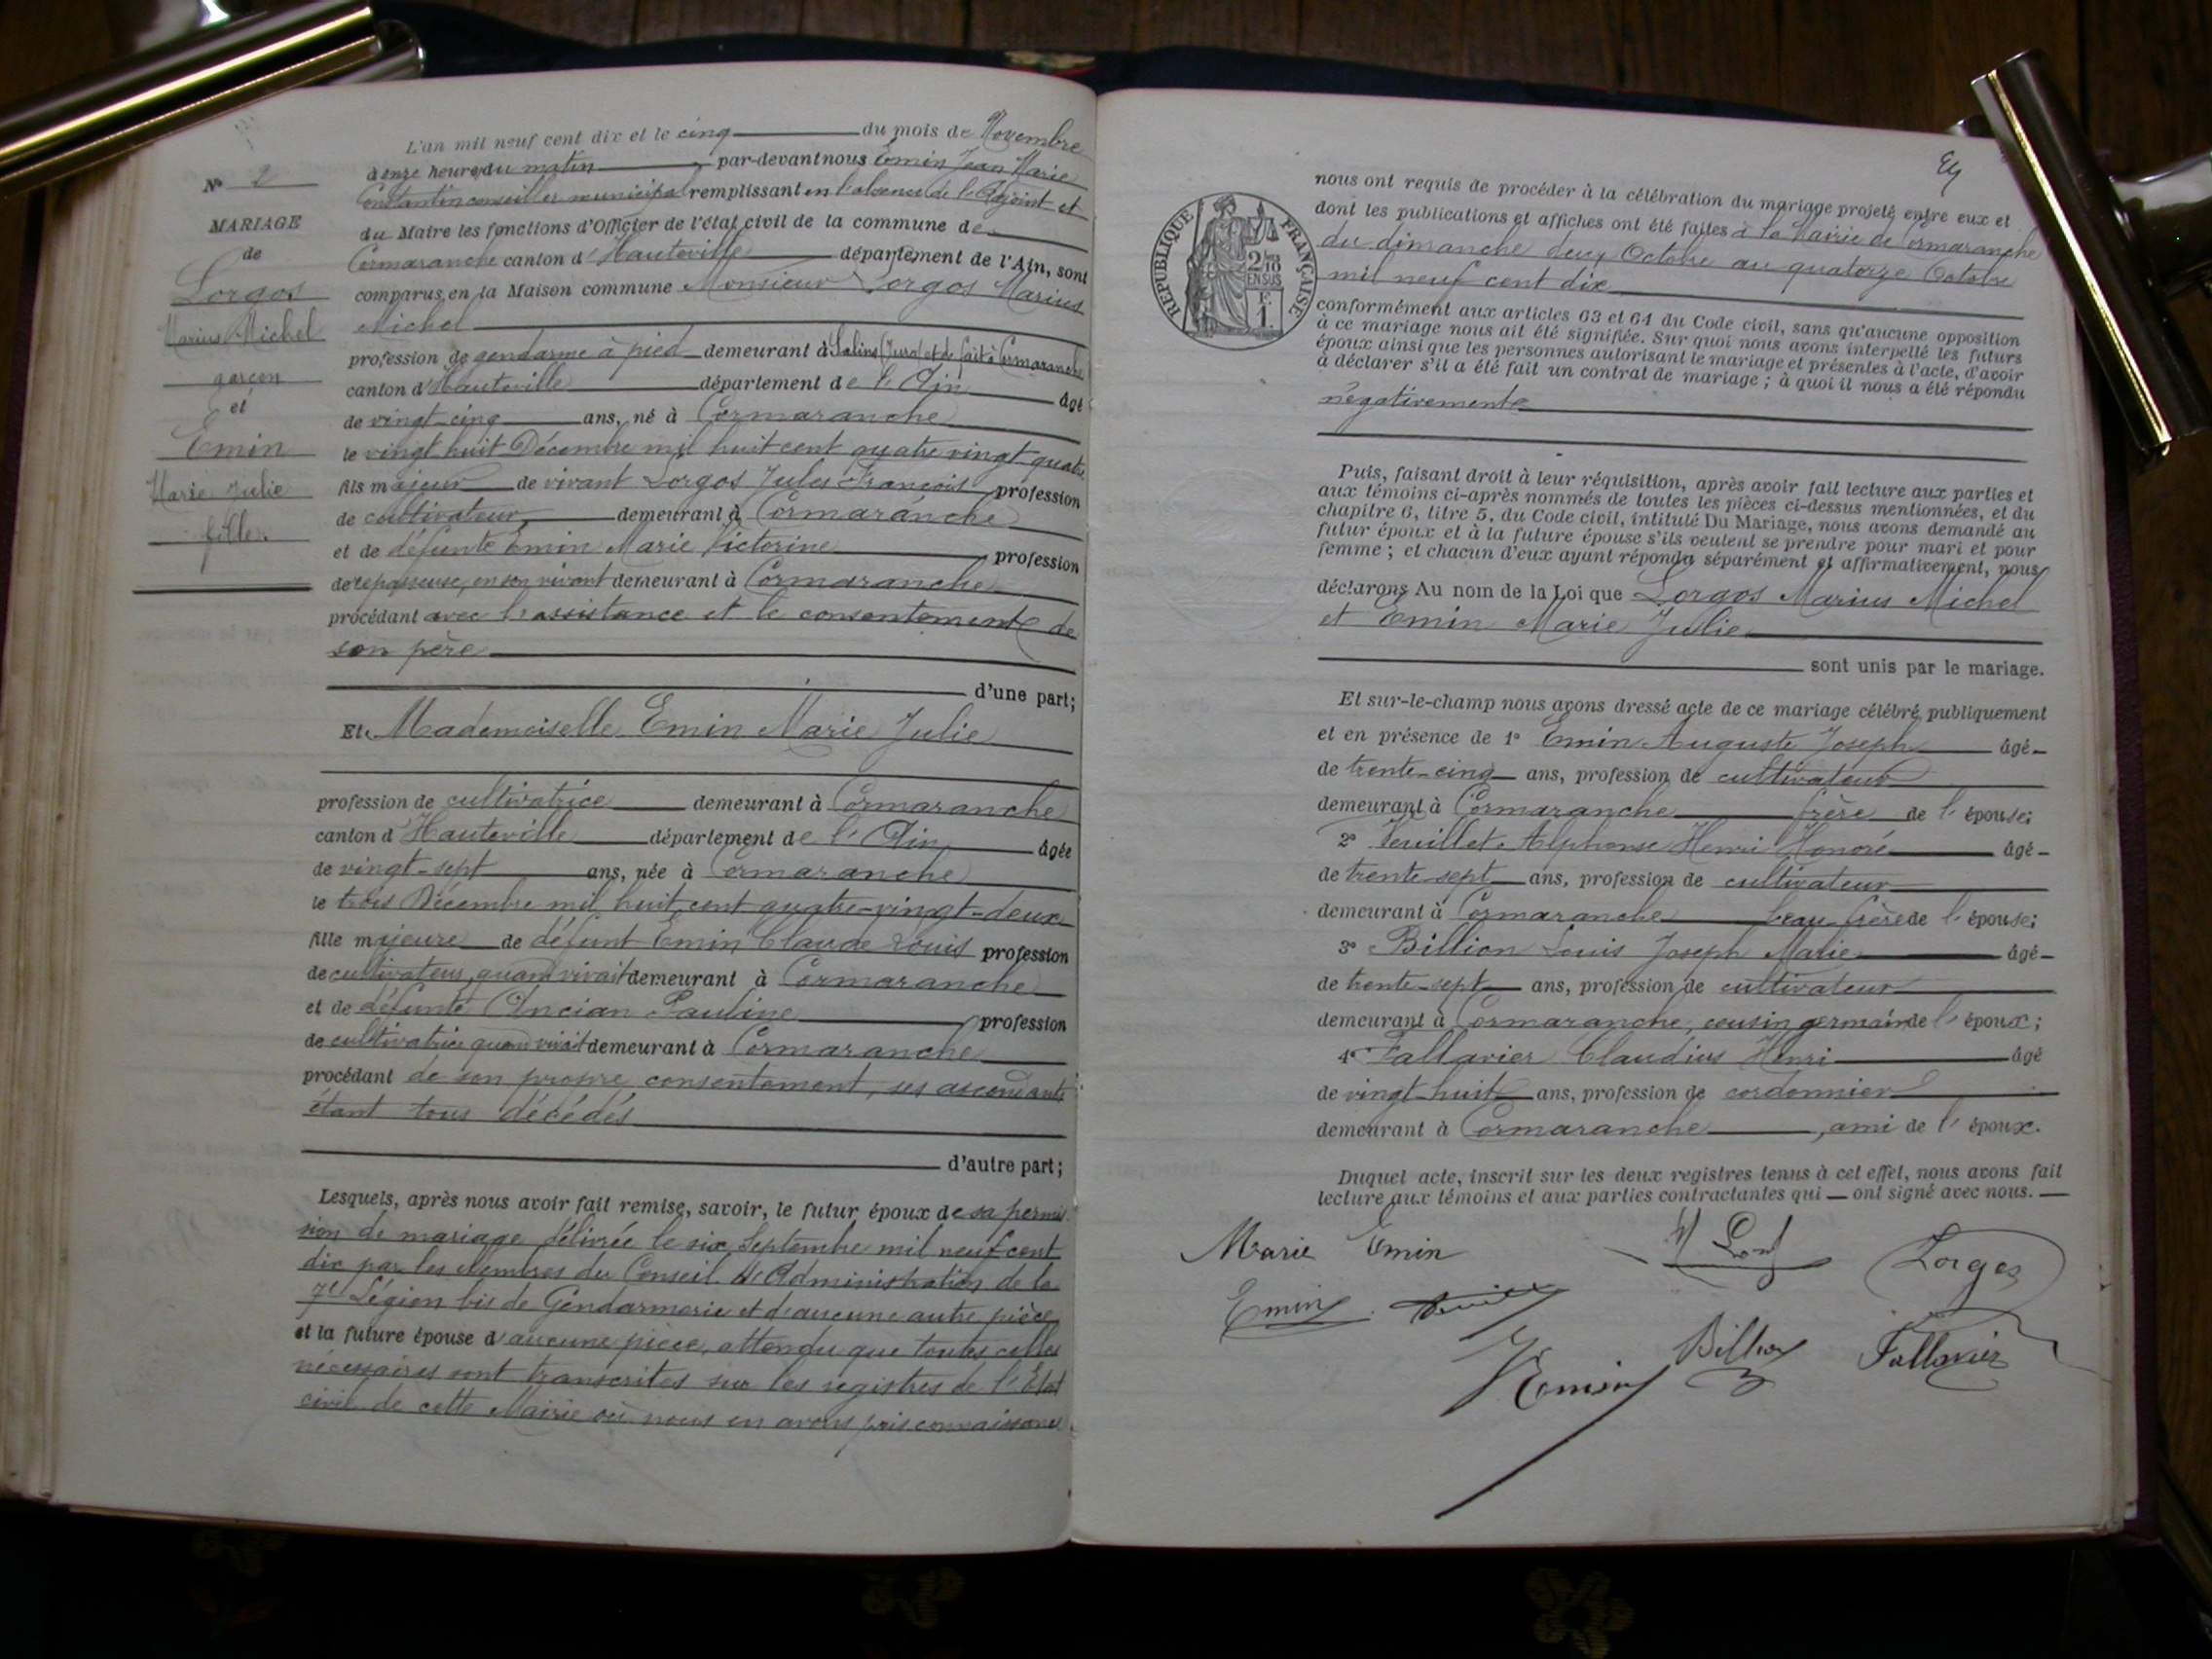 L'an mil neuf cent dix et le cinq du mois de Novembre
à onze heures du matin, par-devant nous Emin Jean Marie
Constantin conseiller municipal remplissant en l'absence de l'Adjoint et
du Maire les fonctions d'Officier de l'état civil de la commune de
Cormaranche canton d'Hauteville département de l'Ain, sont
comparus en la Maison commune Monsieur Lorgos Marius
Michel
profession de gendarme à pied demeurant à Salins (Jura) et de fait à Cormaranche
canton d'Hauteville département de l'Ain âgé
de vingt-cinq ans, né à Cormaranche
le vingt huit Décembre mil huit cent quatre vingt quatre
fils majeur de vivant Lorgos Jules François profession
de cultivateur, demeurant à Cormaranche
et de défunte Emin Marie Victorine profession
de repasseuse, en son vivant demeurant à Cormaranche
procédant avec l'assistance et le consentement de
son père
d'une part;
Et Mademoiselle Emin Marie Julie
profession de cultivatrice demeurant à Cormaranche
canton d'Hauteville département de l'Ain âgée
de vingt-sept ans, née à Cormaranche
le trois Décembre mil huit cent quatre-vingt-deux
fille majeure de défunt Emin Claude Louis profession
de cultivateur, quand vivait demeurant à Cormaranche
et de défunte Ancian Pauline profession
de cultivatrice quand vivait demeurant à Cormaranche
procédant de son propre consentement, ses ascendants
étant tous décédés
d'autre part;
Lesquels, après nous avoir fait remise, savoir, le futur époux de sa permis
sion de mariage délivrée le six Septembre mil neuf cent
dix par les Membres du Conseil d'Administration de la
7e Légion bis de Gendarmerie et d'aucune autre pièce
et la future épouse d'aucune pièce, attendu que toutes celles
nécessaires sont transcrites sur les registres de l'Etat
civil de cette Mairie où nous en avons pris connaissance
N° 2
MARIAGE
de
Lorgos
Marius Michel
garçon
et
Emin
Marie Julie
fille.
RÉPUBLIQUE FRANÇAISE
2/10
EN SUS
F.
1.
nous ont requis de procéder à la célébration du mariage projeté entre eux et
dont les publications et affiches ont été faites à la Mairie de Cormaranche
du dimanche deux Octobre au quatorze Octobre
mil neuf cent dix
conformément aux articles 63 et 64 du Code civil, sans qu'aucune opposition
à ce mariage nous ait été signifiée. Sur quoi nous avons interpellé les futurs
époux ainsi que les personnes autorisant le mariage et présentes à l'acte, d'avoir
à déclarer s'il a été fait un contrat de mariage; à quoi il nous a été répondu
négativement
Puis, faisant droit à leur réquisition, après avoir fait lecture aux parties et
aux témoins ci-après nommés de toutes les pièces ci-dessus mentionnées, et du
chapitre 6, titre 5, du Code civil, intitulé Du Mariage, nous avons demandé au
futur époux et à la future épouse s'ils veulent se prendre pour mari et pour
femme; et chacun d'eux ayant répondu séparément et affirmativement, nous
déclarons Au nom de la Loi que Lorgos Marius Michel
et Emin Marie Julie
sont unis par le mariage.
Et sur-le-champ nous avons dressé acte de ce mariage célébré publiquement
et en présence de 1° Emin Auguste Joseph âgé
de trente-cinq ans, profession de cultivateur
demeurant à Cormaranche frère de l'épouse;
2° Veuillet Alphonse Henri Honoré âgé
de trente sept ans, profession de cultivateur
demeurant à Cormaranche beau frère de l'épouse;
3° Billion Louis Joseph Marie âgé
de trente-sept ans, profession de cultivateur
demeurant à Cormaranche, cousin germain de l'époux;
4° Fallavier Claudius Henri âgé
de vingt-huit ans, profession de cordonnier
demeurant à Cormaranche, ami de l'époux.
Duquel acte, inscrit sur les deux registres tenus à cet effet, nous avons fait
lecture aux témoins et aux parties contractantes qui ont signé avec nous.
Marie Emin Lorgos
Emin
Emin Billion Fallavier